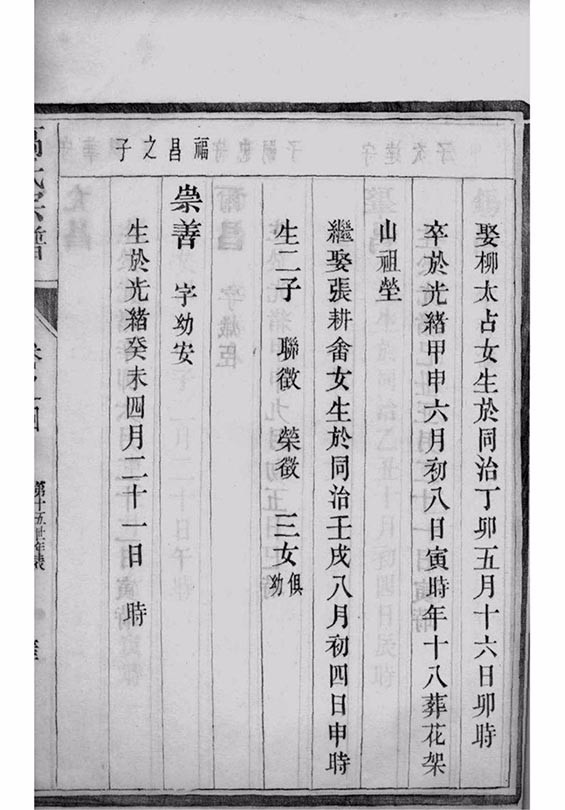 娶柳太占女生於同治丁卯五月十六日卯時
卒於光緒甲申六月初八日寅時年十八葬花架
山祖塋
繼娶張耕畬女生於同治壬戌八月初四日申時
生二子 聯徵 榮徵 三女俱幼
福昌之子
崇善 字幼安
生於光緒癸未四月二十一日 時
高氏宗譜
第十五世年表